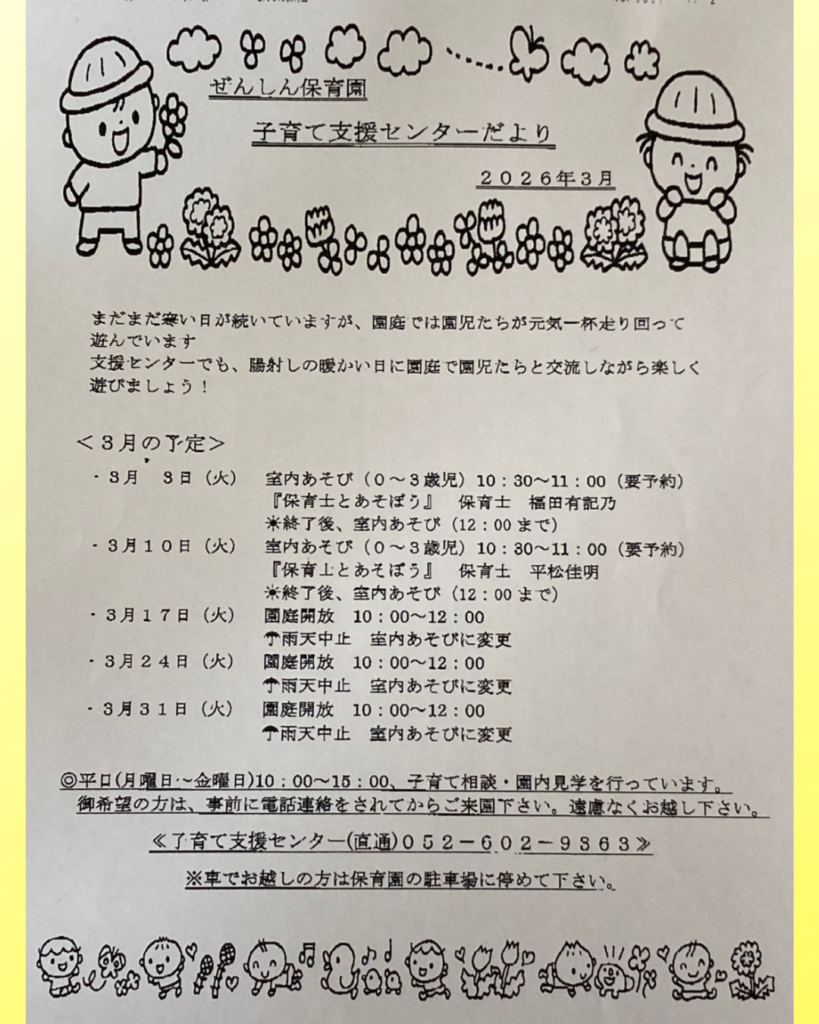 ぜんしん保育園
子育て支援センターだより
2026年3月
まだまだ寒い日が続いていますが、園庭では園児たちが元気一杯走り回って
遊んでいます
支援センターでも、陽射しの暖かい日に園庭で園児たちと交流しながら楽しく
遊びましょう！
＜3月の予定＞
・3月　3日（火）　室内あそび（０～３歳児）10：30～11：00（要予約）
『保育士とあそぼう』　保育士　福田有記乃
☀終了後、室内あそび（12：00まで）
・3月10日（火）　室内あそび（０～３歳児）10：30～11：00（要予約）
『保育士とあそぼう』　保育士　平松佳明
☀終了後、室内あそび（12：00まで）
・3月17日（火）　園庭開放　10：00～12：00
☂雨天中止　室内あそびに変更
・3月24日（火）　園庭開放　10：00～12：00
☂雨天中止　室内あそびに変更
・3月31日（火）　園庭開放　10：00～12：00
☂雨天中止　室内あそびに変更
◎平日(月曜日～金曜日)10：00～15：00、子育て相談・園内見学を行っています。
御希望の方は、事前に電話連絡をされてからご来園下さい。遠慮なくお越し下さい。
≪子育て支援センター(直通)052－602－9363≫
※車でお越しの方は保育園の駐車場に停めて下さい。